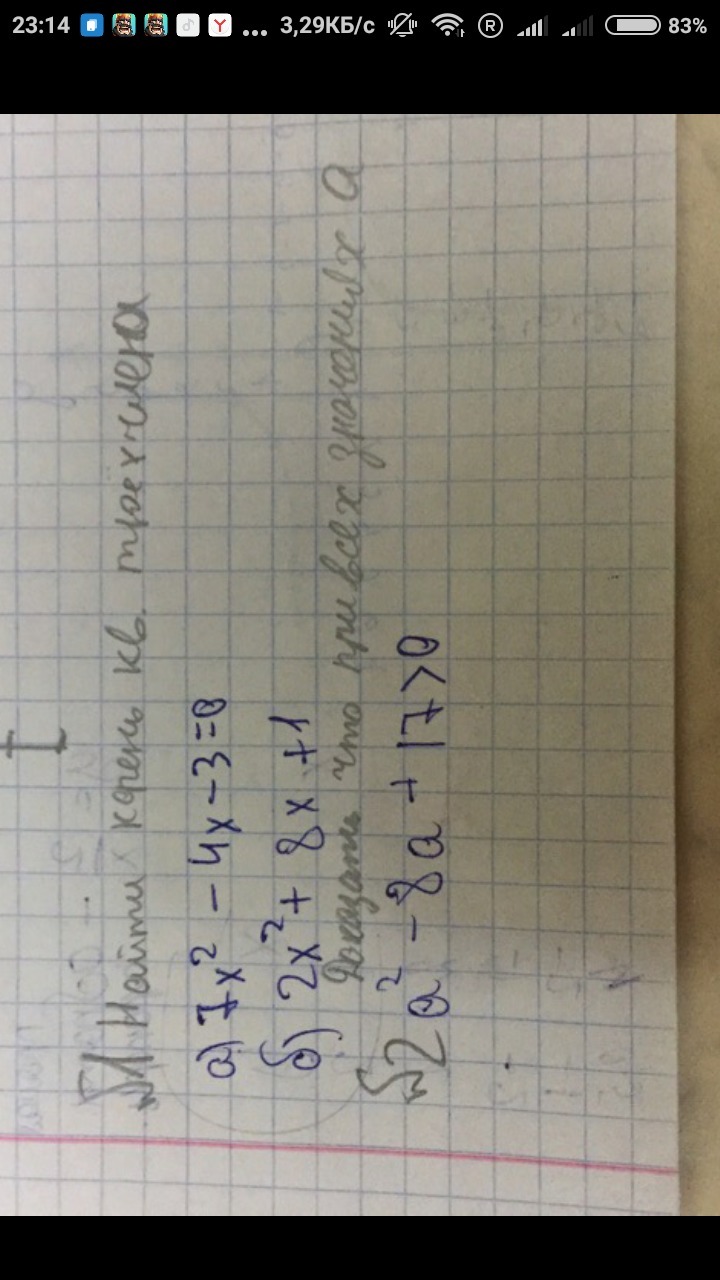 23:14 ... 3,29КБ/с R 83%
№1 Найти корень кв. трёхчлена
а) 7x² - 4x - 3 = 0
б) 2x² + 8x + 1
Доказать что при всех значениях а
№2 a² - 8a + 17 > 0